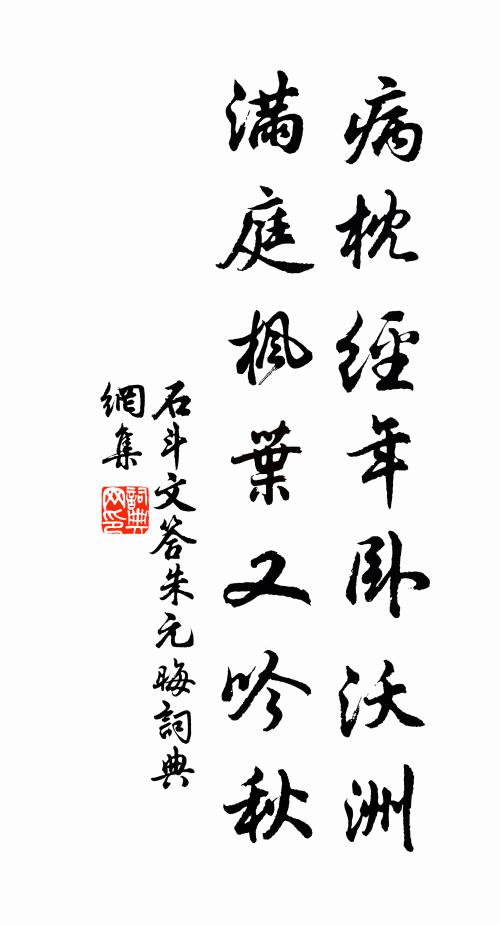 病枕經年卧沃洲
滿庭楓葉又吟秋
石斗文答朱元晦詞典
網集
詞典網印